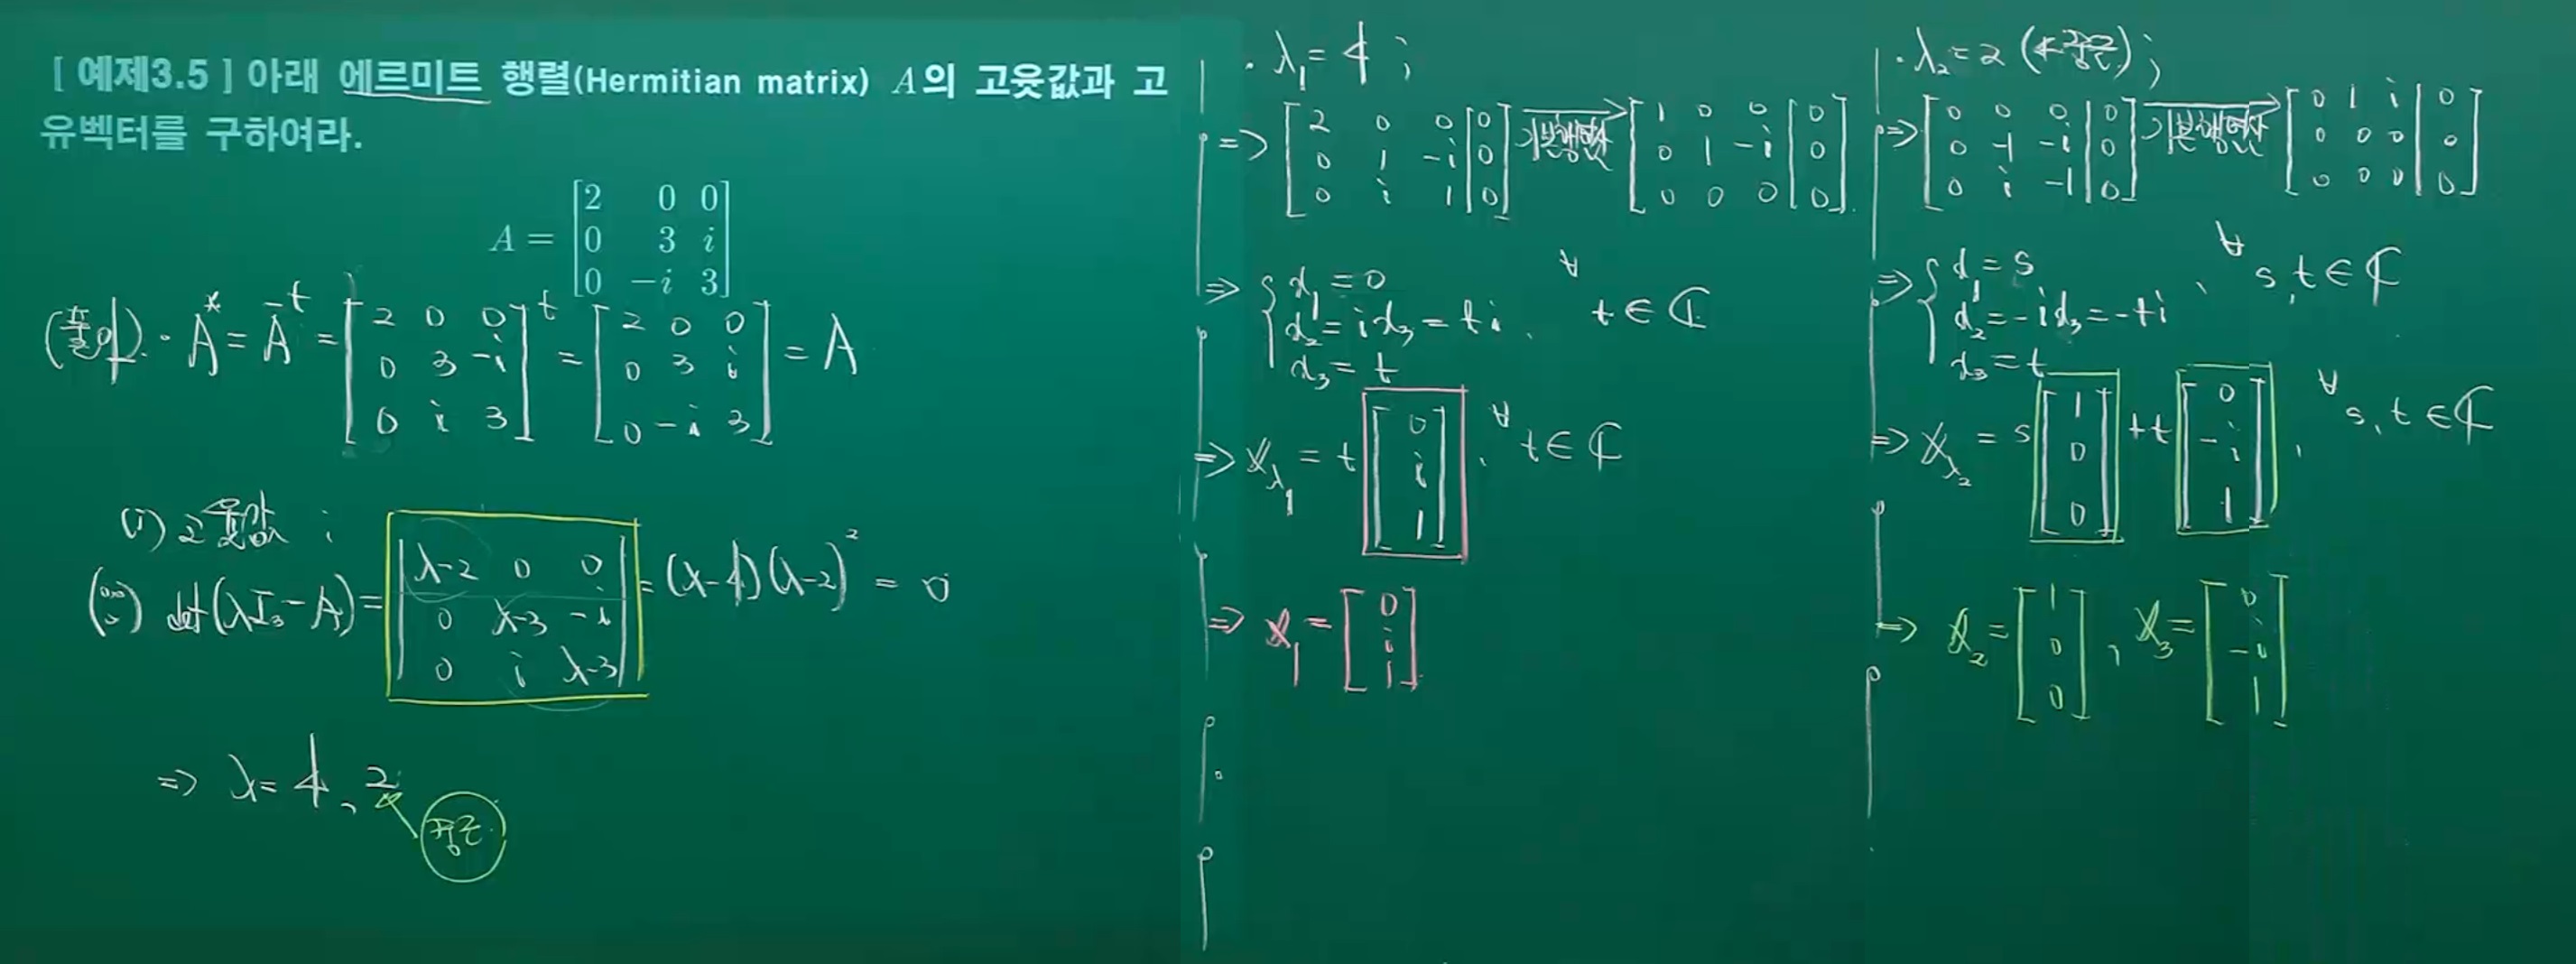 [ 예제3.5 ] 아래 에르미트 행렬(Hermitian matrix) A의 고윳값과 고
유벡터를 구하여라.
A = [2 0 0
0 3 i
0 -i 3]
(풀이). · A* = Ā^t = [2 0 0; 0 3 -i; 0 i 3]^t = [2 0 0; 0 3 i; 0 -i 3] = A
(i) 고윳값 ;
(∵) det(λI₃ - A) = |λ-2 0 0; 0 λ-3 -i; 0 i λ-3| = (λ-4)(λ-2)² = 0
=> λ = 4, 2
중근
· λ₁ = 4 ;
=> [2 0 0 | 0; 0 1 -i | 0; 0 i 1 | 0] 기본행연산 [1 0 0 | 0; 0 1 -i | 0; 0 0 0 | 0]
=> { x₁ = 0
x₂ = ix₃ = ti , ∀t ∈ ℂ
x₃ = t
=> x_λ₁ = t [0; i; 1] , ∀t ∈ ℂ
=> x₁ = [0; i; 1]
· λ₂ = 2 (← 중근) ;
=> [0 0 0 | 0; 0 -1 -i | 0; 0 i -1 | 0] 기본행연산 [0 1 i | 0; 0 0 0 | 0; 0 0 0 | 0]
=> { x₁ = s
x₂ = -ix₃ = -ti , ∀s,t ∈ ℂ
x₃ = t
=> x_λ₂ = s [1; 0; 0] + t [0; -i; 1] , ∀s, t ∈ ℂ
=> x₂ = [1; 0; 0] , x₃ = [0; -i; 1]